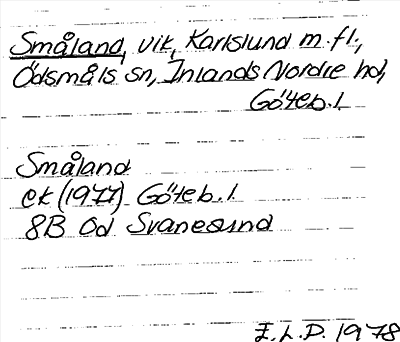 Småland, vik, Karlslund m.fl.,
Ödsmåls sn, Inlands Nordre hd,
Göteb.l.
Småland
ek (1977) Göteb.l.
8B Od Svanesund
E.L.D. 1978